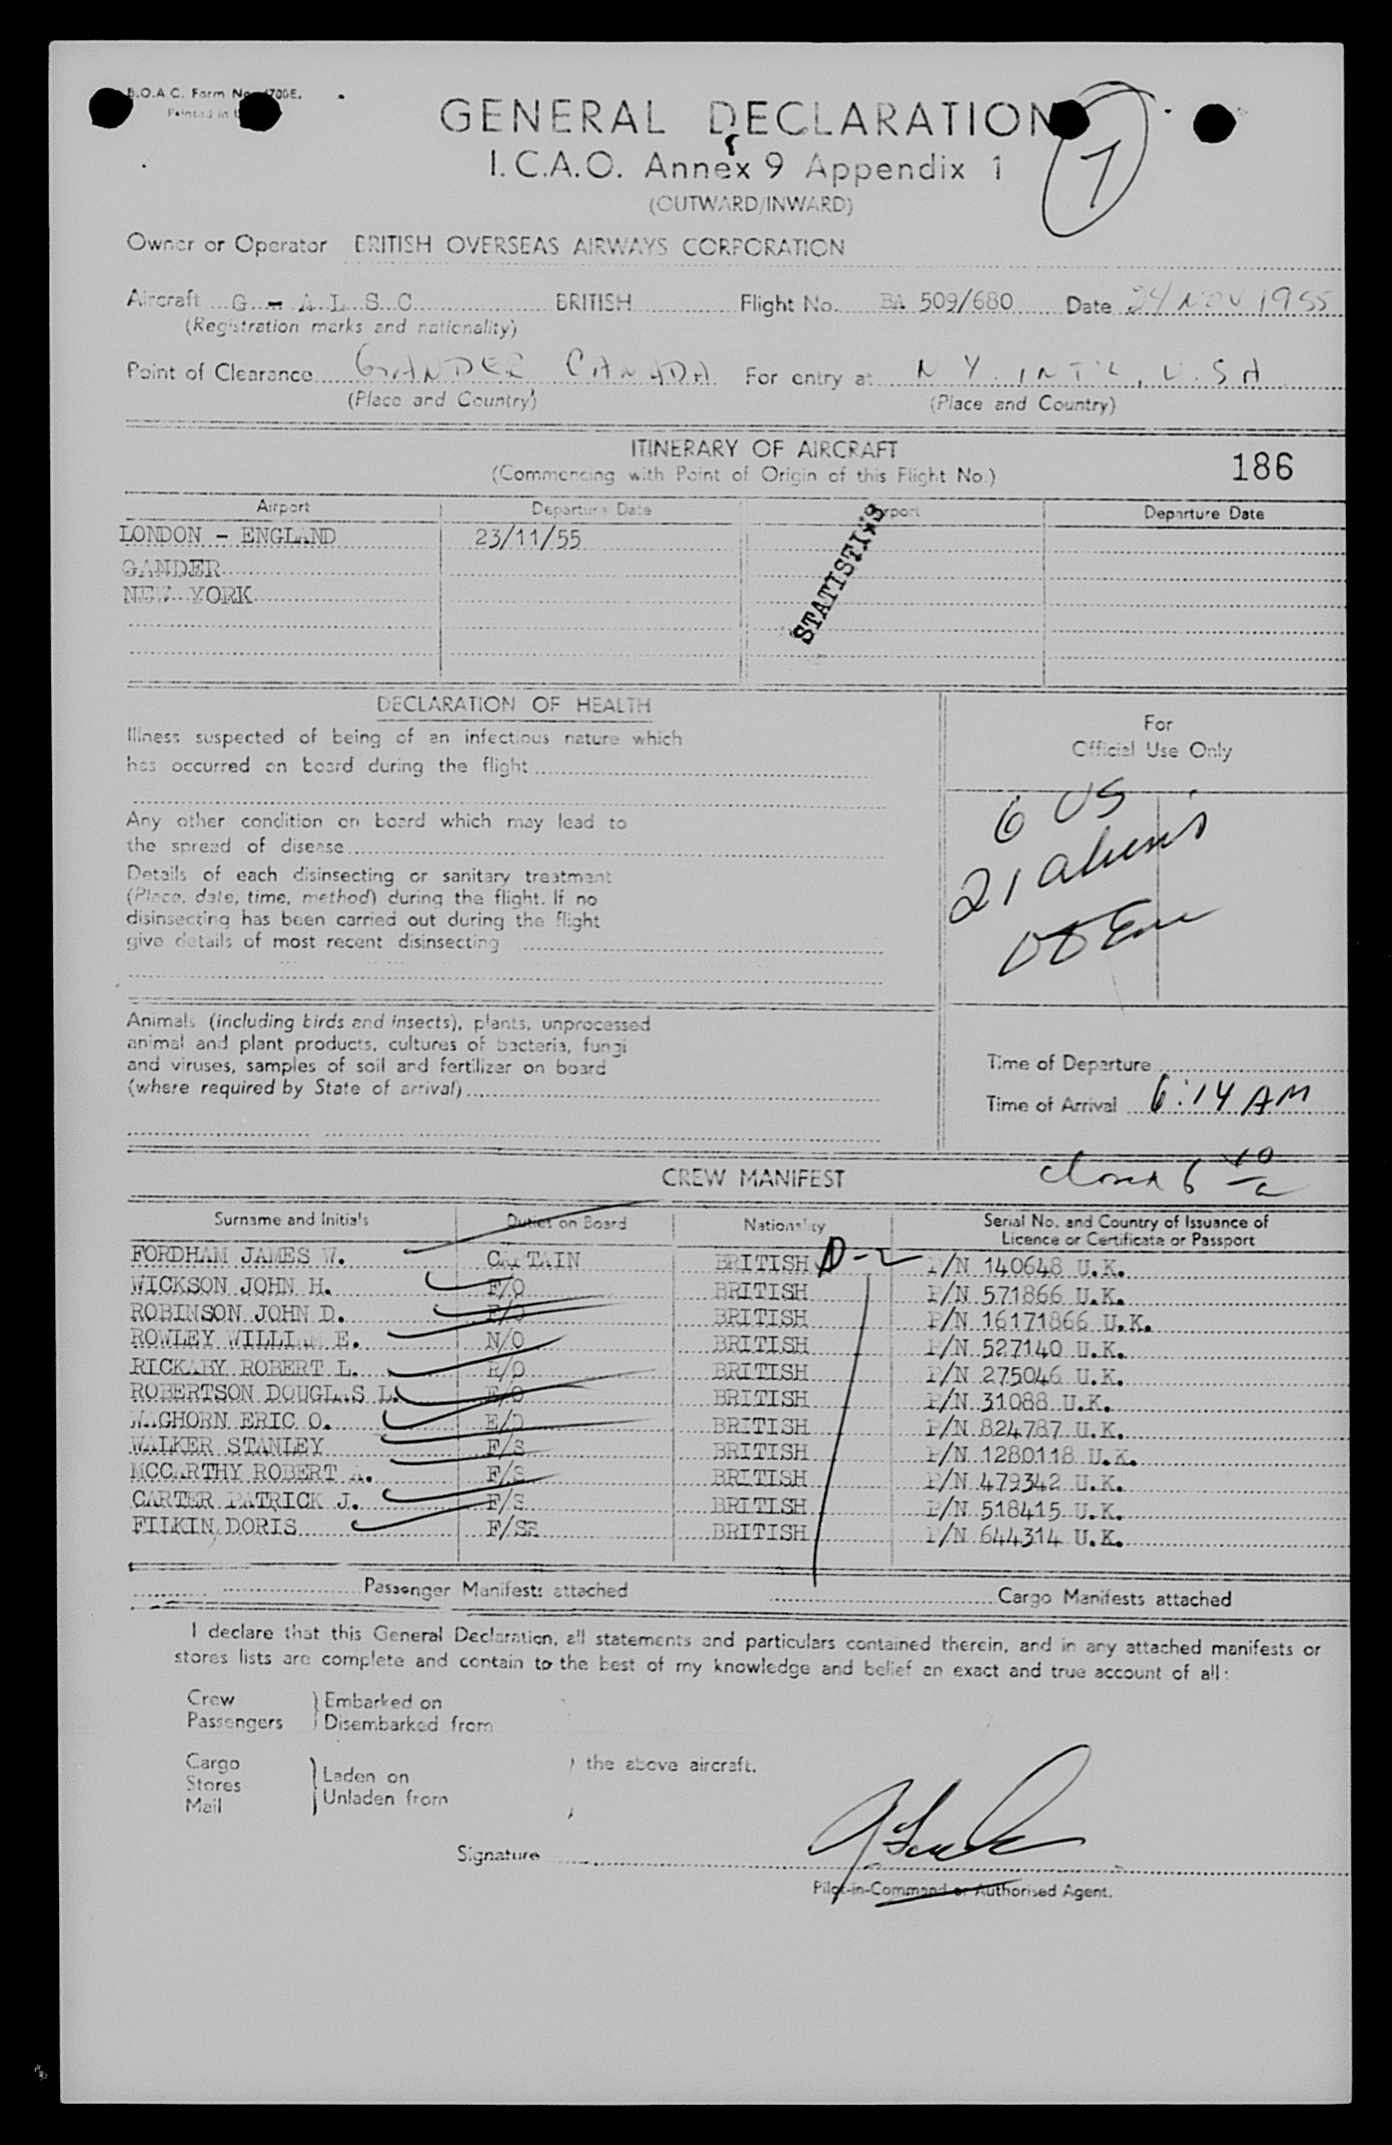 B.O.A.C. Form No.
Printed in
GENERAL DECLARATION
1
I.C.A.O. Annex 9 Appendix 1
(OUTWARD/INWARD)
Owner or Operator BRITISH OVERSEAS AIRWAYS CORPORATION
Aircraft G - A L S C BRITISH Flight No. BA 509/680 Date 24 NOV 1955
(Registration marks and nationality)
Point of Clearance GANDER CANADA For entry at N Y. INT'L, U.S A
(Place and Country) (Place and Country)
ITINERARY OF AIRCRAFT
(Commencing with Point of Origin of this Flight No.) 186
Airport Departure Date Airport Departure Date
LONDON - ENGLAND 23/11/55
GANDER
NEW YORK
STATISTICS
DECLARATION OF HEALTH
Illness suspected of being of an infectious nature which
has occurred on board during the flight
Any other condition on board which may lead to
the spread of disease
Details of each disinsecting or sanitary treatment
(Place, date, time, method) during the flight. If no
disinsecting has been carried out during the flight
give details of most recent disinsecting
For
Official Use Only
6 US
21 aliens
Animals (including birds and insects), plants, unprocessed
animal and plant products, cultures of bacteria, fungi
and viruses, samples of soil and fertilizer on board
(where required by State of arrival)
Time of Departure
Time of Arrival 6:14 AM
CREW MANIFEST
Surname and Initials Duties on Board Nationality Serial No. and Country of Issuance of
Licence or Certificate or Passport
FORDHAM JAMES W. CAPTAIN BRITISH D-2 P/N 140648 U.K.
WICKSON JOHN H. F/O BRITISH P/N 571866 U.K.
ROBINSON JOHN D. F/O BRITISH P/N 16171866 U.K.
ROWLEY WILLIAM E. N/O BRITISH P/N 527140 U.K.
RICKABY ROBERT L. R/O BRITISH P/N 275046 U.K.
ROBERTSON DOUGLAS L. E/O BRITISH P/N 31088 U.K.
WAGHORN ERIC O. E/O BRITISH P/N 824787 U.K.
WALKER STANLEY F/S BRITISH P/N 1280118 U.K.
MCCARTHY ROBERT A. F/S BRITISH P/N 479342 U.K.
CARTER PATRICK J. F/S BRITISH P/N 518415 U.K.
FILKIN DORIS F/SS BRITISH P/N 644314 U.K.
Passenger Manifests attached Cargo Manifests attached
I declare that this General Declaration, all statements and particulars contained therein, and in any attached manifests or
stores lists are complete and contain to the best of my knowledge and belief an exact and true account of all:
Crew Embarked on
Passengers Disembarked from
Cargo
Stores Laden on the above aircraft.
Mail Unladen from
Signature
Pilot-in-Command or Authorised Agent.